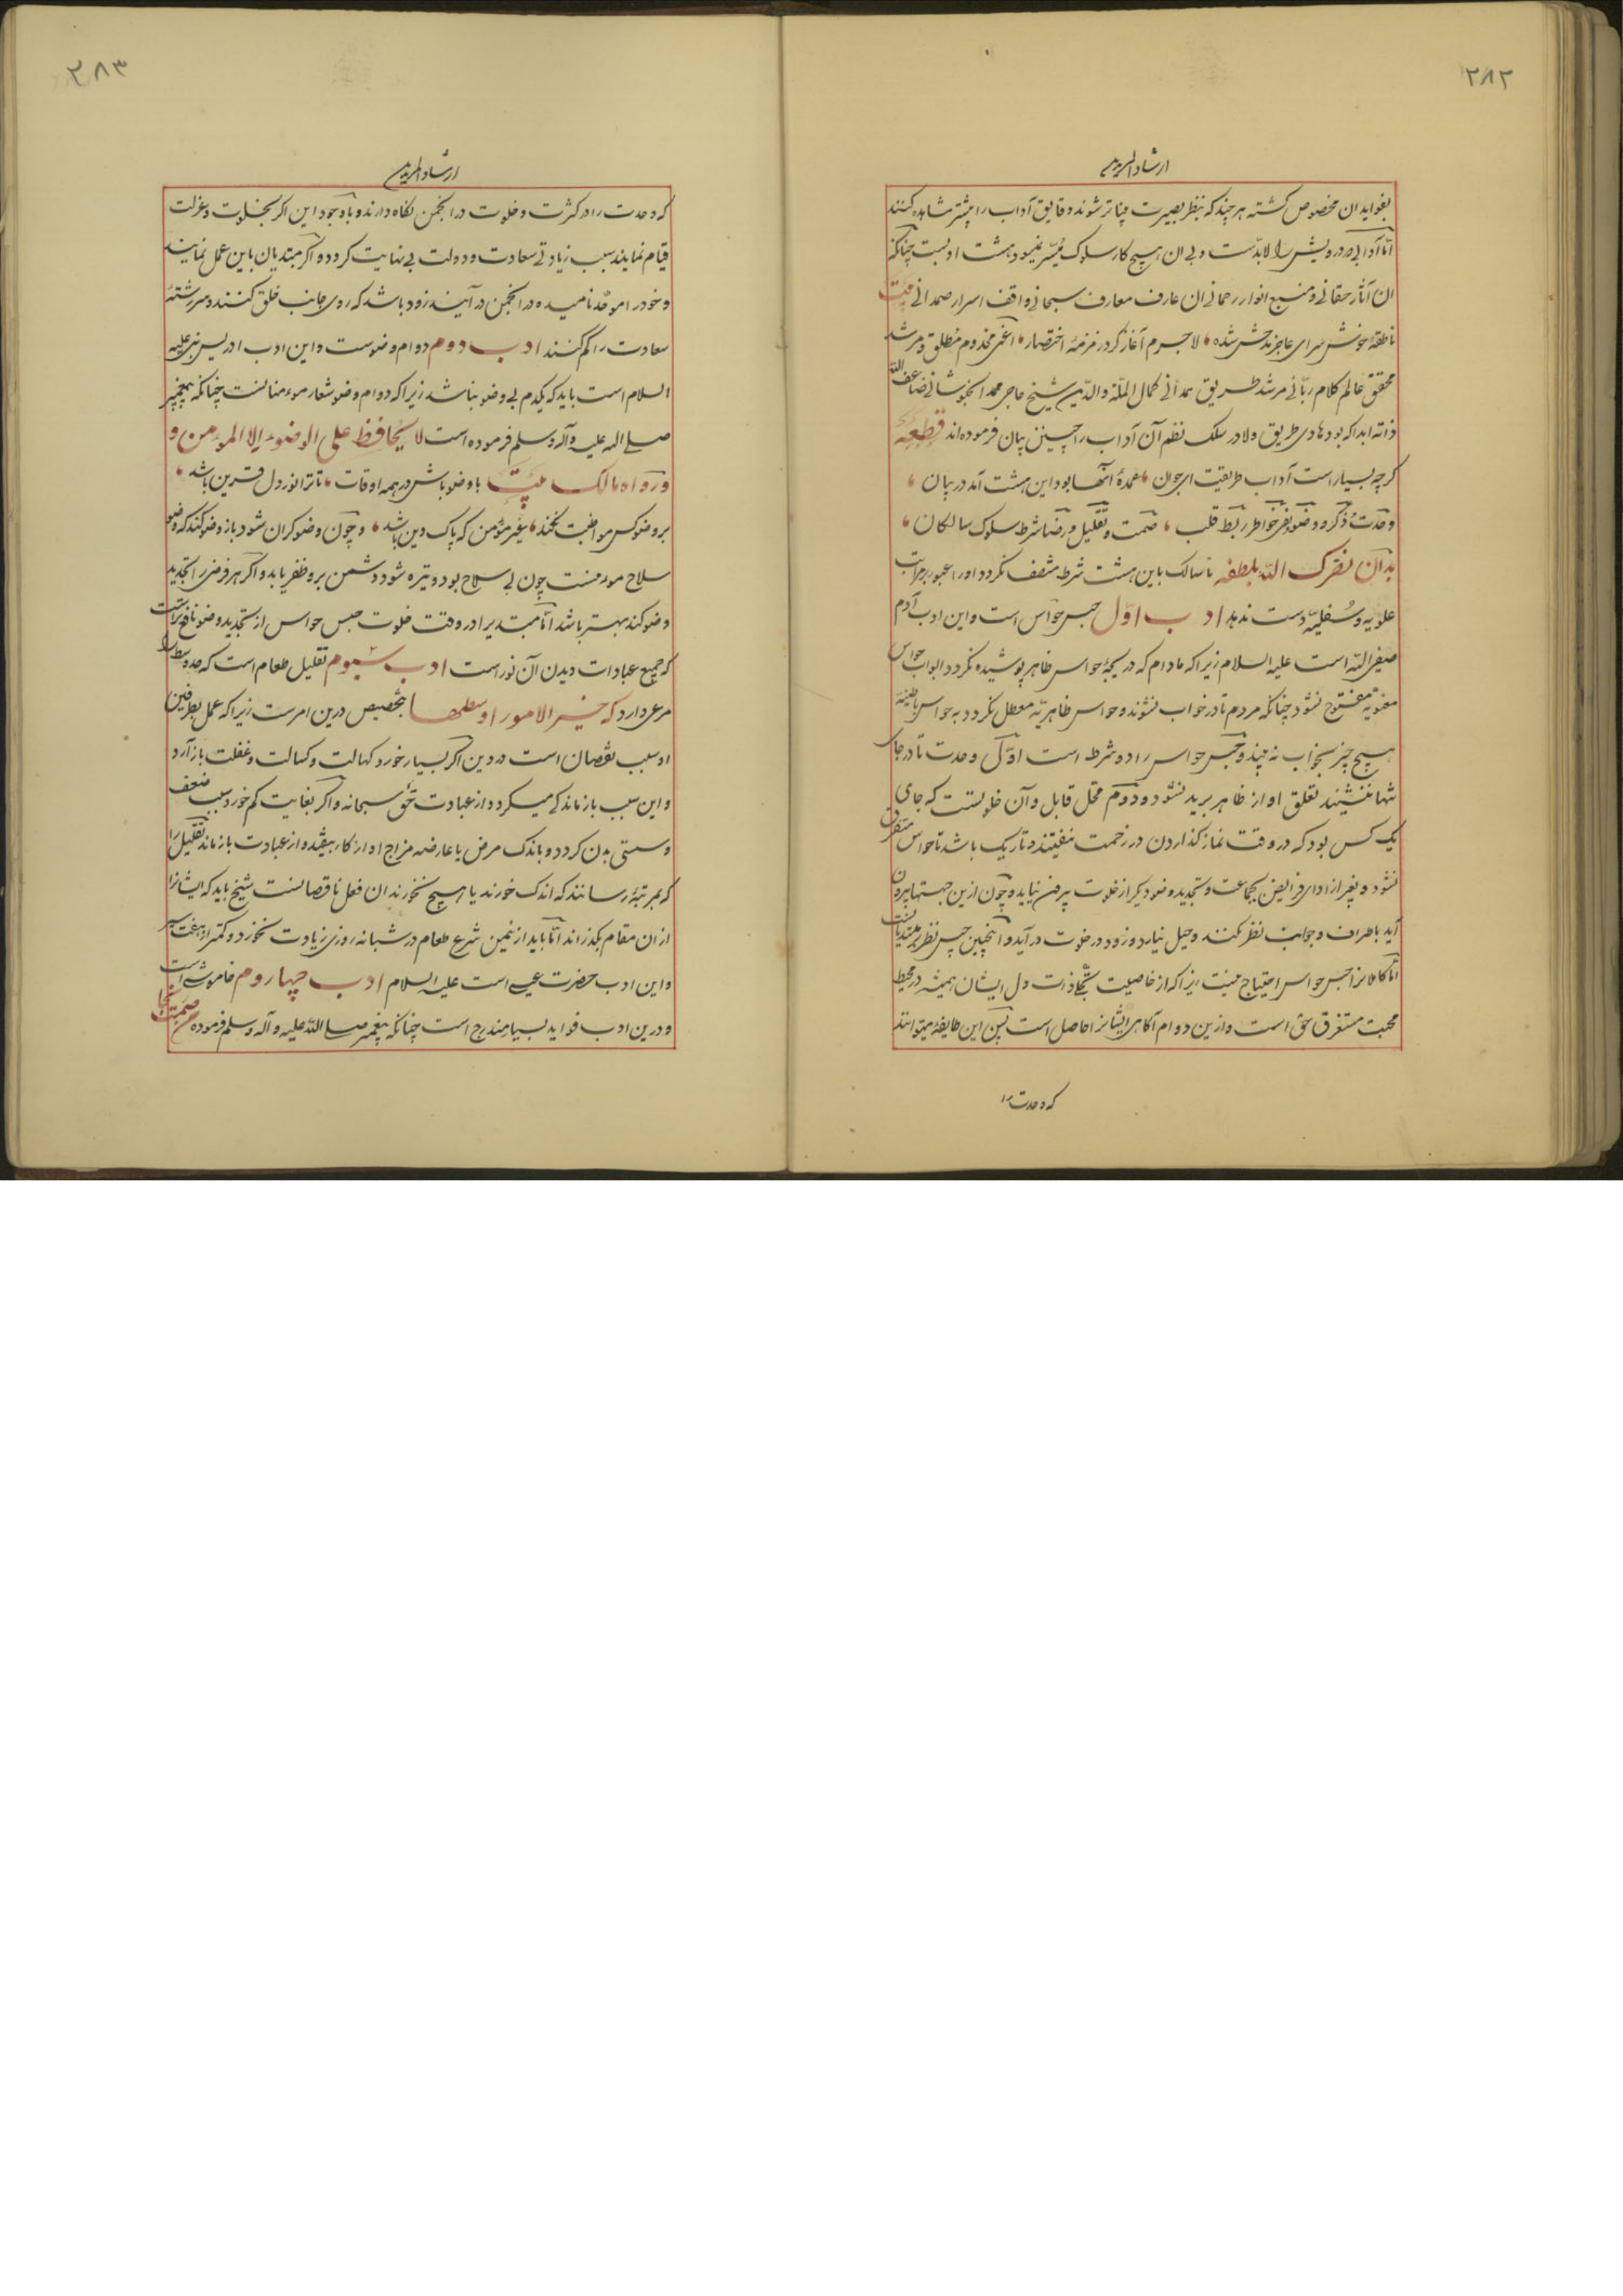 ۲۸۲
ارشاد المریدین
بفواید ان مخصوص کشته هر چند که بنظر بصیرت بیناتر شوند دقایق آداب را بیشتر مشاهده کنند
امّا آدابی که درویش را لابدّست و بی ان هیچ کار سلوک میسّر نمیشود هشت ادبست چنانکه
ان آثار حقانی و منبع انوار رحمانی ان عارف معارف سبحانی واقف اسرار صمدانی بیت
ناطقهٔ خوش سرای عاجز مدحش شده لاجرم آغاز کرد زمزمهٔ اختصار اعنی مخدوم مطلق و مرشد
محقق عالم کلام ربّانی مرشد طریق همدانی کمال الملّة والدّین شیخ حاجی محمد الخبوشانی ضاعف الله
ذاته ابدا که بود هادی طریق ولا در سلک نظم آن آداب را چنین بیان فرموده اند قطعه
کرچه بسیار است آداب طریقت ای جوان عمدهٔ آنها بود این هشت آمد در بیان
وحدت و ذکر و وضو نفی خواطر ربط قلب صمت و تقلیل و رضا شرط سلوک سالکان
بدان نصرک الله بلطفه تا سالک باین هشت شرط متصف نکردد او را عبور بر مراتب
علویه و سفلیّه دست ندهد ادب اوّل حبس حواس است و این ادب آدم
صفی الله است علیه السلام زیرا که مادام که دریچهٔ حواس ظاهر پوشیده نکردد ابواب حواس
معنویّه مفتوح نشود چنانکه مردم تا در خواب نشوند و حواس ظاهریّه معطل نکردد به حواس باطنیّه
هیچ چیز بخواب نه بینند و حبس حواس را دو شرط است اوّل وحدت تا در جای
تنها ننشیند تعلق او از ظاهر بریده نشود و دوم محل قابل و آن خلوتست که جای
یک کس بود که در وقت نماز کذاردن در زحمت نیفتد و تاریک باشد تا حواس متفرق
نشود و بغیر از ادای فرایض بجماعت و تجدید وضو دیکر از خلوت بیرون نیاید و چون ازین جهتها بیرون
آید باطراف و جوانب نظر نکند و حیل نیارد و زود در خلوت در آید و اینچنین حبس نظر مبتدیانست
امّا کاملانرا حبس حواس احتیاج نیست زیرا که از خاصیت تجلّی ذات دل ایشان همیشه در محیط
محبت مستغرق حق است و ازین دوام آکاهی ایشانرا حاصل است پس این طایفه میتوانند
که وحدت را
۲۸۳
ارشاد المریدین
که وحدت را در کثرت و خلوت در انجمن نکاه دارند و باوجود این اکر بخلوت و عزلت
قیام نمایند سبب زیادتی سعادت و دولت بی نهایت کردد و اکر مبتدیان باین عمل نمایند
و خود را موحّد نامیده در انجمن در آیند زود باشد که روی جانب خلق کنند و سر رشتهٔ
سعادت را کم کنند ادب دوم دوام وضوست و این ادب ادریس نبی علیه
السلام است باید که یکدم بی وضو نباشد زیرا که دوام وضو شعار موءمنانست چنانکه پیغمبر
صلی الله علیه و آله و سلم فرموده است لا یحافظ علی الوضوء الا الموءمن و
و رواه مالک بیت با وضو باش در همه اوقات تا ترا نور دل قرین باشد
بر وضو کس مواظبت نکند غیر مؤمن که پاک دین باشد و چون وضو کران شود باز وضو کند که وضو
سلاح موءمنست چون بی سلاح بود و تیره شود دشمن برو ظفر یابد و اکر هر فرضی را تجدید
وضو کند بهتر باشد امّا مبتدی را در وقت خلوت حبس حواس از تجدید وضو نافع تر است
که جمیع عبادات دیدن آن نور است ادب سیوم تقلیل طعام است که حد وسط را
مرعی دارد که خیر الامور اوسطها بتخصیص درین امرست زیرا که عمل بطرفین
او سبب نقصان است در دین اکر بسیار خورد کهالت و کسالت و غفلت باز آرد
و این سبب باز ماندکی میکردد از عبادت حق سبحانه و اکر بغایت کم خورد سبب ضعف
و سستی بدن کردد و باندک مرض یا عارضه مزاج او از کار بیفتد و از عبادت باز ماند تقلیل را
که بمرتبهٔ رسانند که اندک خورند یا هیچ نخورند ان فعل ناقصانست شیخ باید که ایشانرا
از ان مقام بکذراند امّا باید از ثمین شرع طعام در شبانه روزی زیادت نخورد و کمتر از هفت سیر
و این ادب حضرت عیسی است علیه السلام ادب چهاروم خاموشی است
و درین ادب فواید بسیار مندرج است چنانکه پیغمبر صلی الله علیه و آله و سلم فرموده من صمت نجا